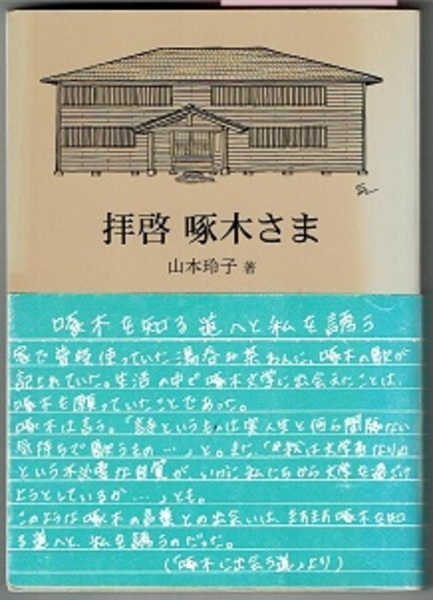 拝啓 啄木さま
山本玲子 著
啄木を知る道へと私を誘う
家で普段使っていた湯呑み茶わんに、啄木の歌が
記されていた。生活の中で啄木文学に出会えたことは、
啄木も願っていたことであった。
啄木は言う。「詩というものは実人生と何ら間隔ない
気持ちで歌うもの…」と。また、
という不必要な自覚が、いかに私たちから文学を遠ざけ
ようとしているか…」とも。
このような啄木の言葉との出会いは、ますます啄木を知
る道へと、私を誘うのだった。
(「啄木に出会う道」より)